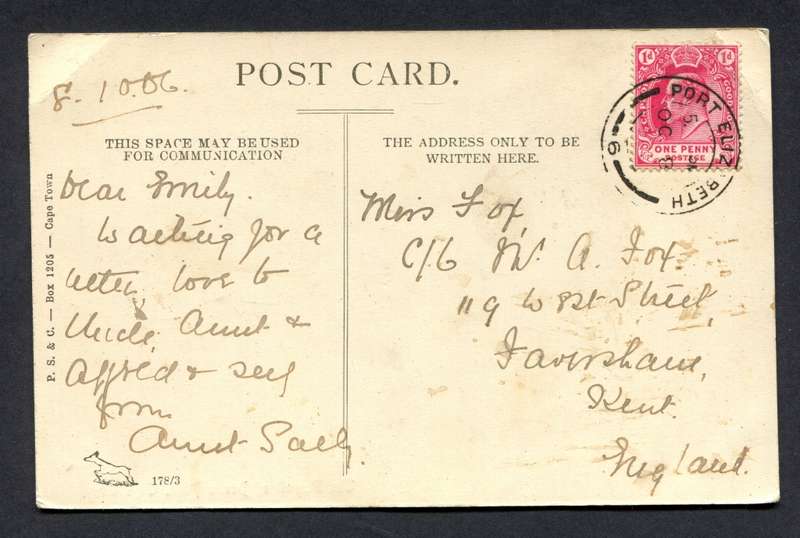 8.10.06.
POST CARD.
THIS SPACE MAY BE USED
FOR COMMUNICATION
THE ADDRESS ONLY TO BE
WRITTEN HERE.
P. S. & C. — Box 1205 — Cape Town
Dear Emily.
Waiting for a
letter love to
Uncle, Aunt &
Alfred & self
from
Aunt Sally.
178/3
1d 1d
ONE PENNY
POSTAGE
PORT ELIZABETH
5
OC
6
Miss Fox,
C/o Mr. A. Fox.
119 West Street,
Faversham,
Kent.
England.